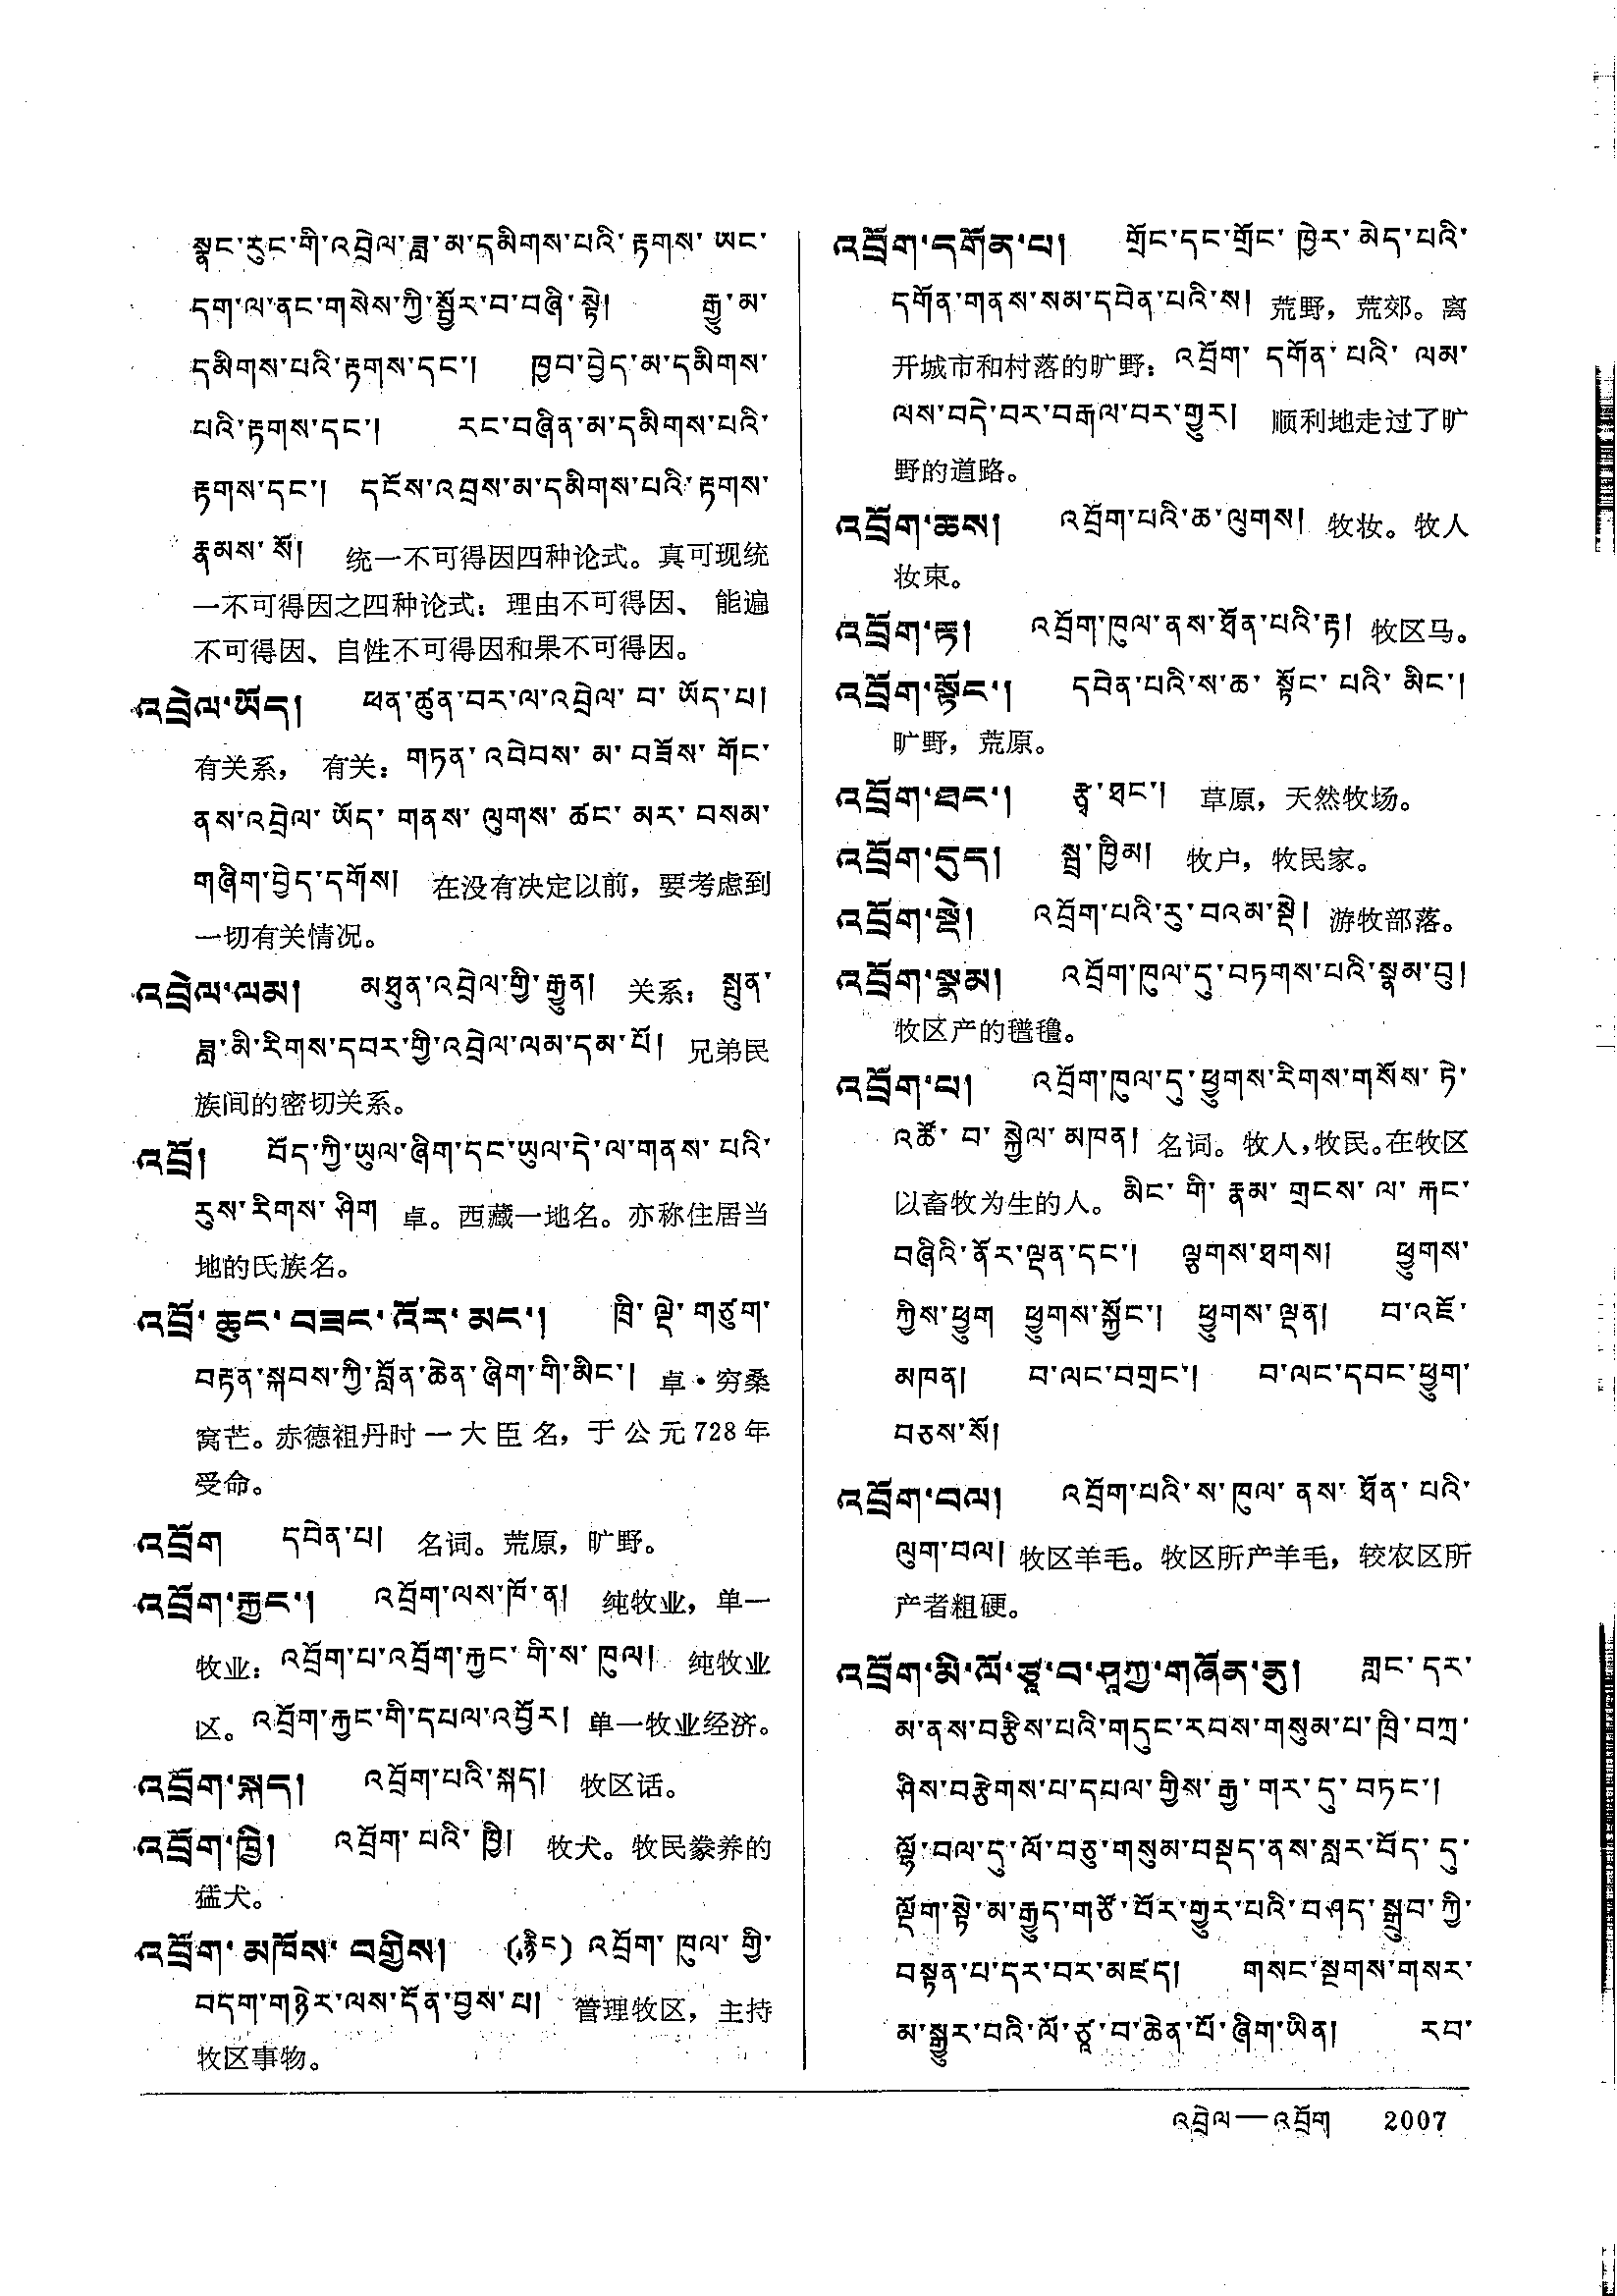 སྣང་རུང་གི་འབྲེལ་ཟླ་མ་དམིགས་པའི་རྟགས་ ཡང་
དག་ལ་ནང་གསེས་ཀྱི་སྦྱོར་བ་བཞི་སྟེ། རྒྱུ་མ་
དམིགས་པའི་རྟགས་དང་། ཁྱབ་བྱེད་མ་དམིགས་
པའི་རྟགས་དང་། རང་བཞིན་མ་དམིགས་པའི་
རྟགས་དང་། དངོས་འབྲས་མ་དམིགས་པའི་རྟགས་
རྣམས་སོ། 统一不可得因四种论式。真可现统
一不可得因之四种论式：理由不可得因、能遍
不可得因、自性不可得因和果不可得因。
འབྲེལ་ཡོད། ཕན་ཚུན་བར་ལ་འབྲེལ་བ་ཡོད་པ།
有关系，有关：གཏན་འབེབས་མ་བཟོས་གོང་
ནས་འབྲེལ་ཡོད་གནས་ལུགས་ཚང་མར་བསམ་
གཞིག་བྱེད་དགོས། 在没有决定以前，要考虑到
一切有关情况。
འབྲེལ་ལམ། མཐུན་འབྲེལ་གྱི་རྒྱུན། 关系：སྤུན་
ཟླ་མི་རིགས་དབར་གྱི་འབྲེལ་ལམ་དམ་པོ། 兄弟民
族间的密切关系。
འབྲོ། བོད་ཀྱི་ཡུལ་ཞིག་དང་ཡུལ་དེ་ལ་གནས་པའི་
རུས་རིགས་ཤིག 卓。西藏一地名。亦称住居当
地的氏族名。
འབྲོ་ཆུང་བཟང་འོར་མང་། ཁྲི་ལྡེ་གཙུག་
བརྟན་སྐབས་ཀྱི་བློན་ཆེན་ཞིག་གི་མིང་། 卓·穷桑
窝芒。赤德祖丹时一大臣名，于公元728年
受命。
འབྲོག དབེན་པ། 名词。荒原，旷野。
འབྲོག་རྐྱང་། འབྲོག་ལས་ཁོ་ན། 纯牧业，单一
牧业：འབྲོག་པ་འབྲོག་རྐྱང་གི་ས་ཁུལ། 纯牧业
区。འབྲོག་རྐྱང་གི་དཔལ་འབྱོར། 单一牧业经济。
འབྲོག་སྐད། འབྲོག་པའི་སྐད། 牧区话。
འབྲོག་ཁྱི། འབྲོག་པའི་ཁྱི། 牧犬。牧民豢养的
猛犬。
འབྲོག་མཁོས་བགྱིས། (རྙིང) འབྲོག་ཁུལ་གྱི་
བདག་གཉེར་ལས་དོན་བྱས་པ། 管理牧区，主持
牧区事物。
འབྲོག་དགོན་པ། གྲོང་དང་གྲོང་ཁྱེར་མེད་པའི་
དགོན་གནས་སམ་དབེན་པའི་ས། 荒野，荒郊。离
开城市和村落的旷野：འབྲོག་དགོན་པའི་ལམ་
ལས་བདེ་བར་བརྒལ་བར་གྱུར། 顺利地走过了旷
野的道路。
འབྲོག་ཆས། འབྲོག་པའི་ཆ་ལུགས། 牧妆。牧人
妆束。
འབྲོག་རྟ། འབྲོག་ཁུལ་ནས་ཐོན་པའི་རྟ། 牧区马。
འབྲོག་སྟོང་། དབེན་པའི་ས་ཆ་སྟོང་པའི་མིང་།
旷野，荒原。
འབྲོག་ཐང་། རྩྭ་ཐང་། 草原，天然牧场。
འབྲོག་དུད། སྦྲ་ཁྱིམ། 牧户，牧民家。
འབྲོག་སྡེ། འབྲོག་པའི་རུ་བའམ་སྡེ། 游牧部落。
འབྲོག་སྣམ། འབྲོག་ཁུལ་དུ་བཏགས་པའི་སྣམ་བུ།
牧区产的氆氇。
འབྲོག་པ། འབྲོག་ཁུལ་དུ་ཕྱུགས་རིགས་གསོས་ཏེ་
འཚོ་བ་སྐྱེལ་མཁན། 名词。牧人，牧民。在牧区
以畜牧为生的人。མིང་གི་རྣམ་གྲངས་ལ་རྐང་
བཞིའི་ནོར་ལྡན་དང་། ལྕགས་ཐགས། ཕྱུགས་
ཀྱིས་ཕྱུག ཕྱུགས་སྐྱོང་། ཕྱུགས་ལྡན། བ་འཇོ་
མཁན། བ་ལང་བགྲང་། བ་ལང་དབང་ཕྱུག་
བཅས་སོ།
འབྲོག་བལ། འབྲོག་པའི་ས་ཁུལ་ནས་ཐོན་པའི་
ལུག་བལ། 牧区羊毛。牧区所产羊毛，较农区所
产者粗硬。
འབྲོག་མི་ལོ་ཙཱ་བ་ཤཱཀྱ་གཞོན་ནུ། གླང་དར་
མ་ནས་བརྩིས་པའི་གདུང་རབས་གསུམ་པ་ཁྲི་བཀྲ་
ཤིས་བརྩེགས་པ་དཔལ་གྱིས་རྒྱ་གར་དུ་བཏང་།
ལྷོ་བལ་དུ་ལོ་བཅུ་གསུམ་བསྡད་ནས་སླར་བོད་དུ་
ལྡོག་སྟེ་མ་རྒྱུད་གཙོ་བོར་གྱུར་པའི་བཤད་སྒྲུབ་ཀྱི་
བསྟན་པ་དར་བར་མཛད། གསང་སྔགས་གསར་
མ་སྒྱུར་བའི་ལོ་ཙཱ་བ་ཆེན་པོ་ཞིག་ཡིན། རབ་
འབྲེལ—འབྲོག 2007